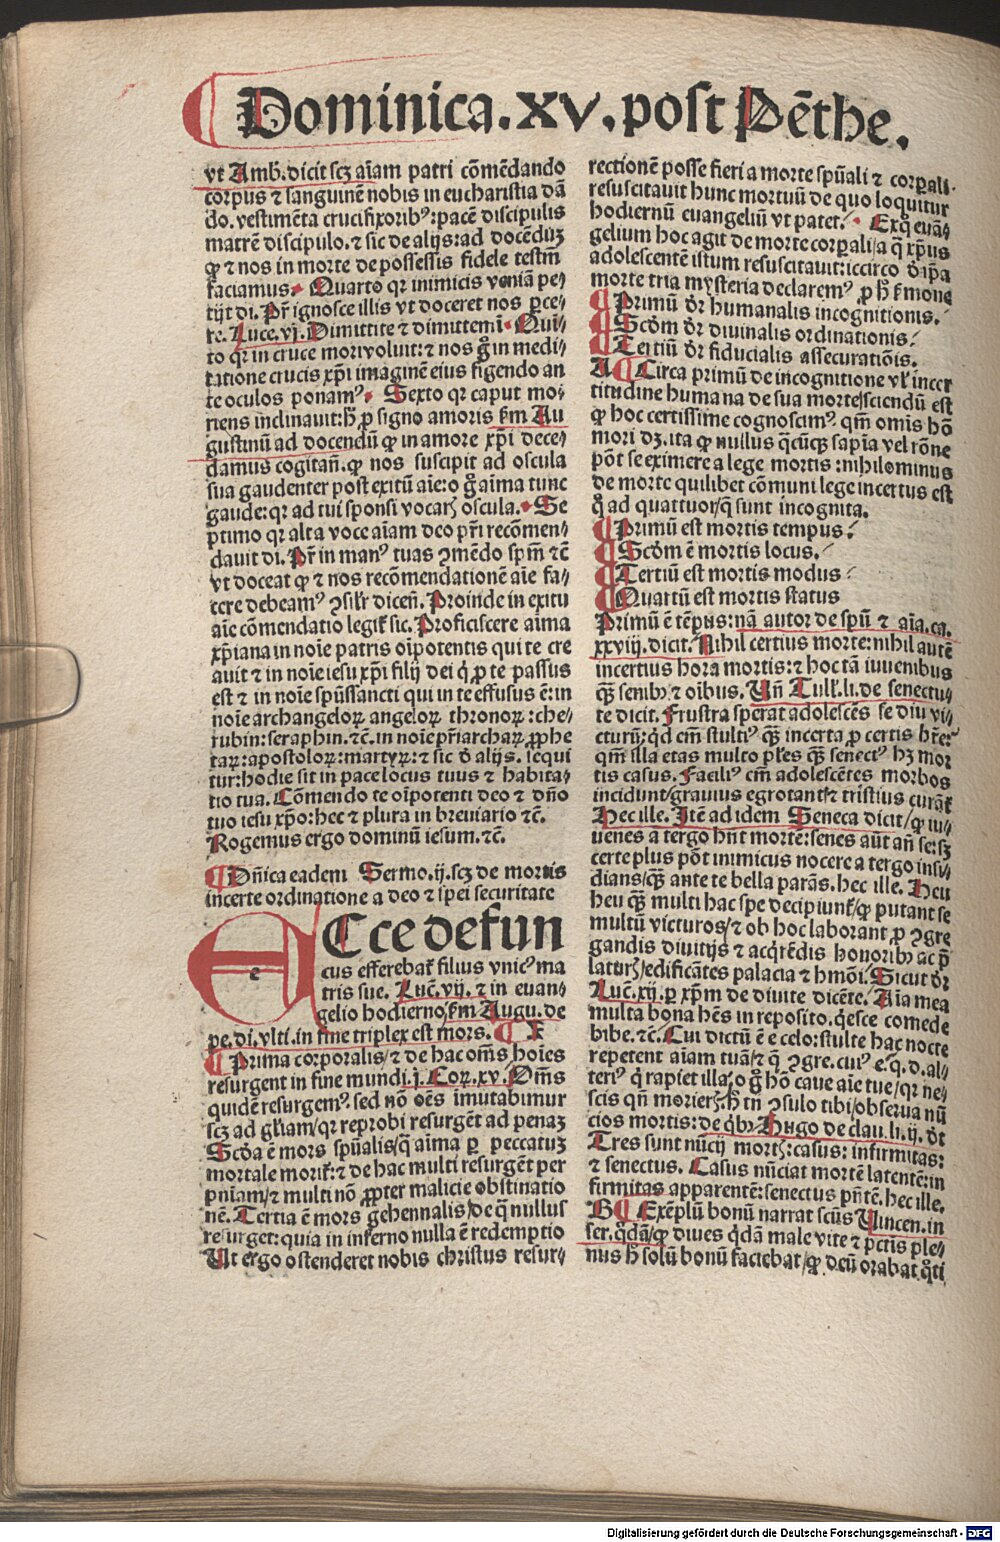 Dominica.XV.post Pēthe.
vt Amb.dicit scꝫ aīam patri cōmēdando
corpus ⁊ sanguinē nobis in eucharistia dā
do.vestimēta crucifixoribꝰ:pacē discipulis
matrē discipulo.⁊ sic de alijs:ad docēduꝫ
ꝙ ⁊ nos in morte de possessis fidele testm̄
faciamus. Quarto qꝛ inimicis veniā pe⸗
tijt di. Pr̄ ignosce illis vt doceret nos ꝑce⸗
re. Luce.vj. Dimittite ⁊ dimittemī. Qui⸗
to qꝛ in cruce mori voluit:⁊ nos g̊ in medi⸗
tatione crucis xp̄i imaginē eius figendo an
te oculos ponamꝰ. Sexto qꝛ caput mo⸗
riens inclinauit:h̄ ꝓ signo amoris km̄ Au
gustinū ad docendū ꝙ in amore xp̄i dece⸗
damus cogitan̄.ꝙ nos suscipit ad oscula
sua gaudenter post exitū aīe:o g̊ aīma tunc
gaude:qꝛ ad tui sponsi vocarꝭ oscula. Se
ptimo qꝛ alta voce aīam deo pr̄i recōmen⸗
dauit di. Pr̄ in manꝰ tuas ꝯmēdo spm̄ ⁊c̄
vt doceat ꝙ ⁊ nos recōmendationē aīe fa⸗
cere debeamꝰ ꝯsilr̄ dicen̄. Proinde in exitu
aīe cōmendatio legit̄ sic. Proficiscere aīma
xp̄iana in noīe patris oīpotentis qui te cre
auit ⁊ in noīe iesu xp̄i filij dei q̇ ꝓ te passus
est ⁊ in noīe spūssancti qui in te effusus ē:in
noīe archangeloꝝ angeloꝝ thronoꝝ:che⸗
rubin:seraphin.⁊c̄.in noīe pr̄iarchaꝝ ꝓphe
taꝝ:apostoloꝝ:martyꝝ:⁊ sic d̄ alijs. sequi
tur:hodie sit in pace locus tuus ⁊ habita⸗
tio tua. Cōmendo te oīpotenti deo ⁊ dn̄o
tuo iesu xp̄o:hec ⁊ plura in breuiario ⁊c̄.
Rogemus ergo dominū iesum.⁊c̄.
¶ Dn̄ica eadem Sermo.ij.scꝫ de mortis
incerte ordinatione a deo ⁊ ip̄ei securitate
e
ECce defun
ctus efferebat̄ filius vnicꝰ ma
tris sue. Luc̄.vij.⁊ in euan⸗
gelio hodierno/km̄ Augu.de
pe.di.vlti.in fine triplex est mors. ¶ X
¶ Prima corporalis/⁊ de hac om̄s hoīes
resurgent in fine mundi.j.Coꝝ.xv. Om̄s
quidē resurgemꝰ.sed nō oēs imutabimur
scꝫ ad gl̄iam/qꝛ reprobi resurgēt ad penaꝫ
Scd̄a ē mors spūalis/q̄ aīma ꝑ peccatuꝫ
mortale morit̄:⁊ de hac multi resurgēt per
pn̄iam/⁊ multi nō ꝓpter malicie obstinatio
nē. Tertia ē mors gehennalis/de q̄ nullus
resurget:quia in inferno nulla ē redemptio
Ut ergo ostenderet nobis christus resur⸗
rectionē posse fieri a morte spūali ⁊ corꝑali.
resuscitauit hunc mortuū de quo loquitur
hodiernū euangeliū vt patet. Ex q̊ euā⸗
gelium hoc agit de morte corꝑali/a q̄ xp̄us
adolescentē istum resuscitauit:iccirco d̄ ip̄a
morte tria mysteria declaremꝰ ꝓ h̄ ẜmone
¶ Primū dr̄ humanalis incognitionis.
¶ Scd̄m dr̄ diuinalis ordinationis
¶ Tertiū dr̄ fiducialis assecuratiōis.
A ¶ Circa primū de incognitione vl̄ incer
titudine humana de sua morte/sciendū est
ꝙ hoc certissime cognoscimꝰ qm̄ omīs hō
mori dꝫ.ita ꝙ nullus q̄cūqꝫ sapīa vel rōne
pōt se eximere a lege mortis:nihilominus
de morte quilibet cōmuni lege incertus est
q̊ ad quattuor/q̄ sunt incognita.
¶ Primū est mortis tempus
¶ Scd̄m ē mortis locus.
¶ Tertiū est mortis modus
¶ Quartū est mortis status
Primū ē tēpus:nā autor de spū ⁊ aīa.ca.
xxviij.dicit. Nihil certius morte:nihil autē
incertius hora mortis:⁊ hoc tā iuuenibus
qꝫ senibꝫ ⁊ oībus. Un̄ Tull̄.li.de senectu⸗
te dicit. Frustra sperat adolescēs se diu vi⸗
cturū:qd̄ em̄ stultiꝰ qꝫ incerta ꝓ certis hr̄e:
qm̄ illa etas multo pl̄es qꝫ senectꝰ hꝫ mor
tis casus. Faciliꝰ em̄ adolescētes morbos
incidunt/grauius egrotant⁊ tristius curāt̄
Hec ille. Itē ad idem Seneca dicit/ꝙ iu⸗
uenes a tergo hn̄t mortē:senes aūt an̄ se:sꝫ
certe plus pōt inimicus nocere a tergo insi⸗
dians/qꝫ ante te bella parās.hec ille. Heu
heu qꝫ multi hac spe decipiunt̄/ꝙ putant se
multū victuros/⁊ ob hoc laborant ꝓ ꝯgre
gandis diuitijs ⁊ acq̇rēdis honoribꝫ ac p̄
laturꝭ/edificātes palacia ⁊ hm̄ōi. Sicut dr̄
Luc̄.xij.ꝑ xp̄m de diuite dicēte. Aīa mea
multa bona hēs in reposito.q̇esce comede
bibe.⁊c̄. Cui dictū ē e celo:stulte hac nocte
repetent aīam tuā/⁊ q̄ ꝯgre.cuiꝰ e.q.d.al⸗
teriꝰ q̇ rapiet illa/o g̊ hō caue aīe tue/qꝛ ne⸗
scis qn̄ morierꝭ.h̄ tn̄ ꝯsulo tibi/obserua nū
cios mortis:de q̇bꝫ Hugo de clau.li.ij.dr̄
Tres sunt nūcij mortꝭ:casus:infirmitas:
⁊ senectus. Casus nūciat mortē latentē:in
firmitas apparentē:senectus pn̄tē.hec ille.
B ¶ Exēplū bonū narrat sctūs Uincen.in
ser.q̇dā/ꝙ diues q̇dā male vite ⁊ pctīs ple⸗
nus h̄ solū bonū faciebat/ꝙ deū orabat q̊ti
Digitalisierung gefördert durch die Deutsche Forschungsgemeinschaft - DFG